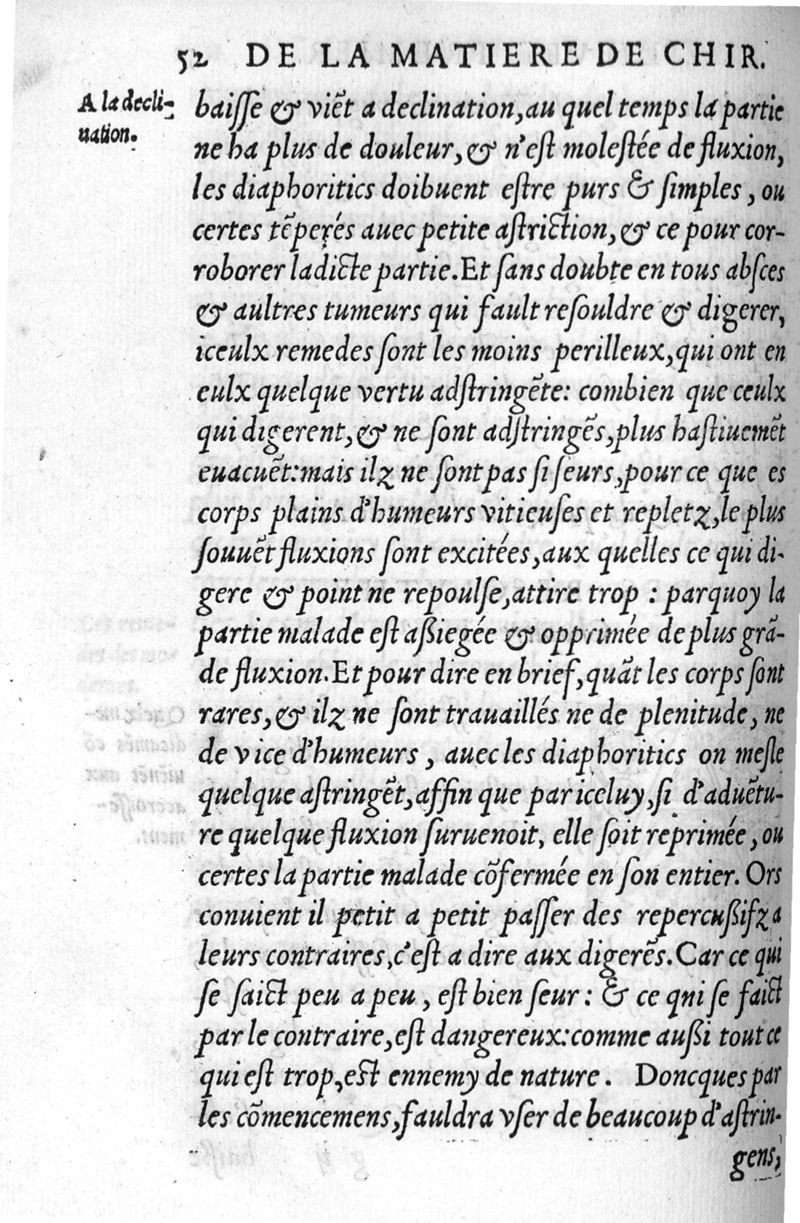 52 DE LA MATIERE DE CHIR.
A la decli-
nation.
baiſſe & viẽt a declination, au quel temps la partie
ne ha plus de douleur, & n'eſt moleſtée de fluxion,
les diaphoritics doibuent eſtre purs & ſimples, ou
certes tẽperés auec petite aſtriction, & ce pour cor-
roborer ladicte partie. Et ſans doubte en tous abſces
& aultres tumeurs qui fault reſouldre & digerer,
iceulx remedes ſont les moins perilleux, qui ont en
eulx quelque vertu adſtringẽte: combien que ceulx
qui digerent, & ne ſont adſtringẽs, plus haſtiuemẽt
euacuẽt: mais ilz ne ſont pas ſi ſeurs, pour ce que es
corps plains d'humeurs vitieuſes et repletz, le plus
ſouuẽt fluxions ſont excitées, aux quelles ce qui di-
gere & point ne repoulſe, attire trop : parquoy la
partie malade eſt aßiegée & opprimée de plus grã-
de fluxion. Et pour dire en brief, quãt les corps ſont
rares, & ilz ne ſont trauaillés ne de plenitude, ne
de vice d'humeurs, auec les diaphoritics on meſle
quelque aſtringẽt, affin que par iceluy, ſi d'aduẽtu-
re quelque fluxion ſuruenoit, elle ſoit reprimée, ou
certes la partie malade cõfermée en ſon entier. Ors
conuient il petit a petit paſſer des repercußifz a
leurs contraires, c'eſt a dire aux digerẽs. Car ce qui
ſe faict peu a peu, eſt bien ſeur : & ce qni ſe faict
par le contraire, eſt dangereux: comme außi tout ce
qui eſt trop, eſt ennemy de nature. Doncques par
les cõmencemens, fauldra vſer de beaucoup d'aſtrin-
gens,